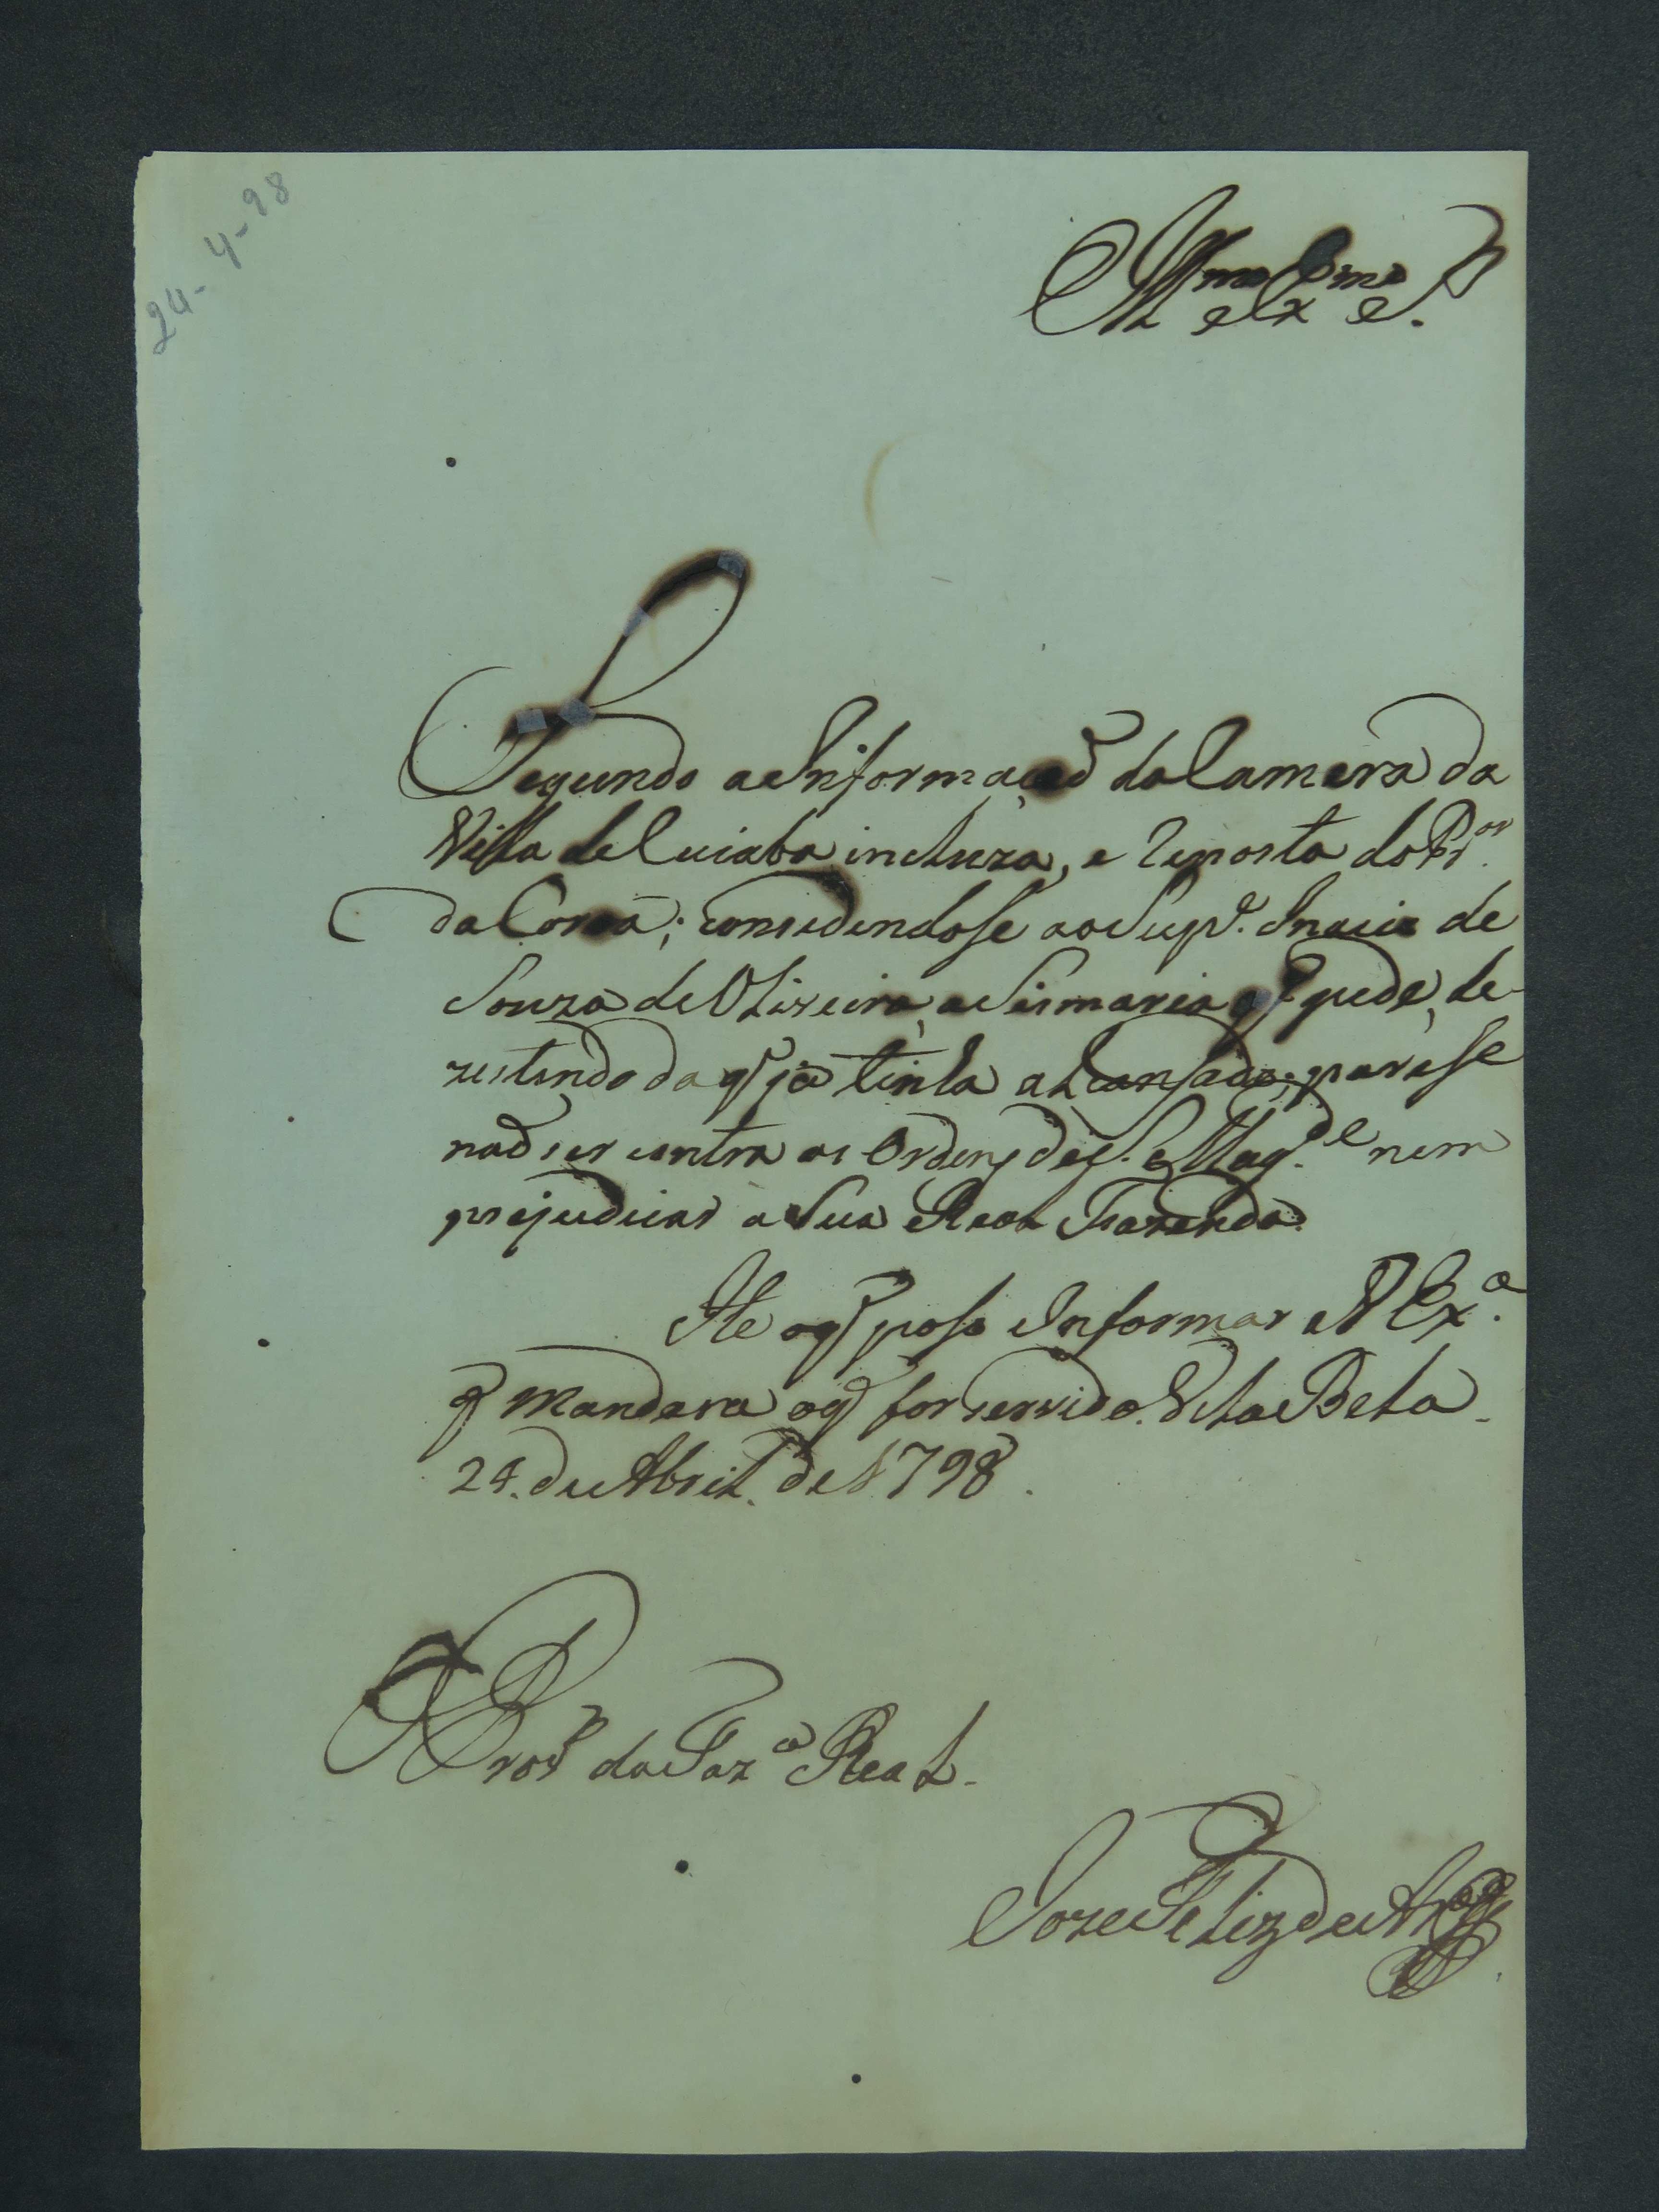 24-4-98
Illmo e Exmo Sr.
Segundo a Informaçaõ da Camera da
Villa de Cuiaba incluza, e reposta do Pror.
da Coroa; consedendose ao Supe. Inacio de
Souza de Oliveira, a Sismaria q̃ pede, de-
zestindo da q̃ ja tinha alcansado; parese
naõ ser contra as Ordens de S. Magde. nem
prejudicar a Sua Real Fazenda.
He o q̃ poso Informar a V Exa.
q̃ mandara o q̃ for servido. Va. Bela
24. de Abril. de 1798.
O Pror da Faza Real.
Joze Feliz de